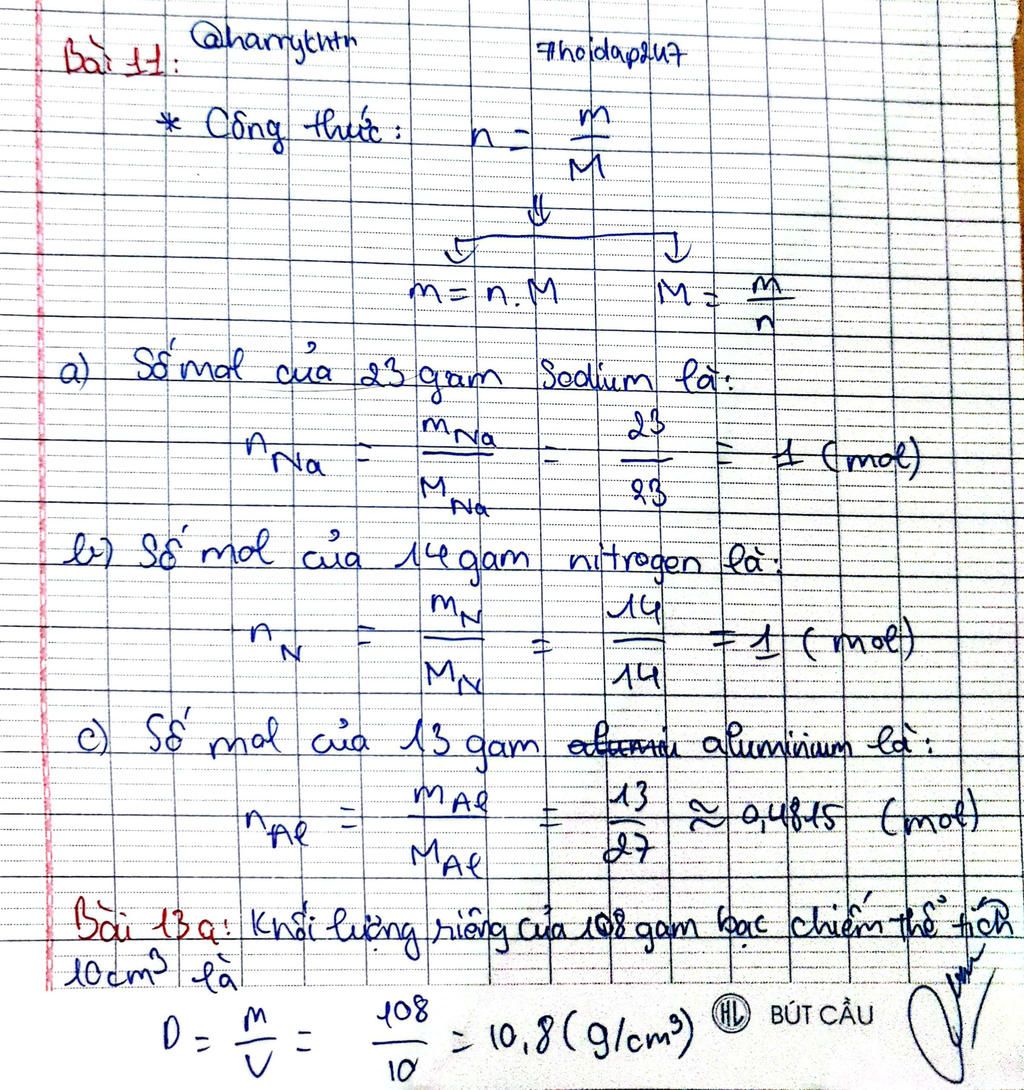 @harrythtn #hoidap247
Bài 11:
* Công thức: n = m/M
⇓
m = n.M M = m/n
a) Số mol của 23 gam Sodium là:
n_Na = m_Na/M_Na = 23/23 = 1 (mol)
b) Số mol của 14 gam nitrogen là:
n_N = m_N/M_N = 14/14 = 1 (mol)
c) Số mol của 13 gam aluminium là:
n_Al = m_Al/M_Al = 13/27 ≈ 0,4815 (mol)
Bài 13a: Khối lượng riêng của 108 gam bạc chiếm thể tích
10cm³ là
D = m/V = 108/10 = 10,8 (g/cm³)
HL BÚT CẦU